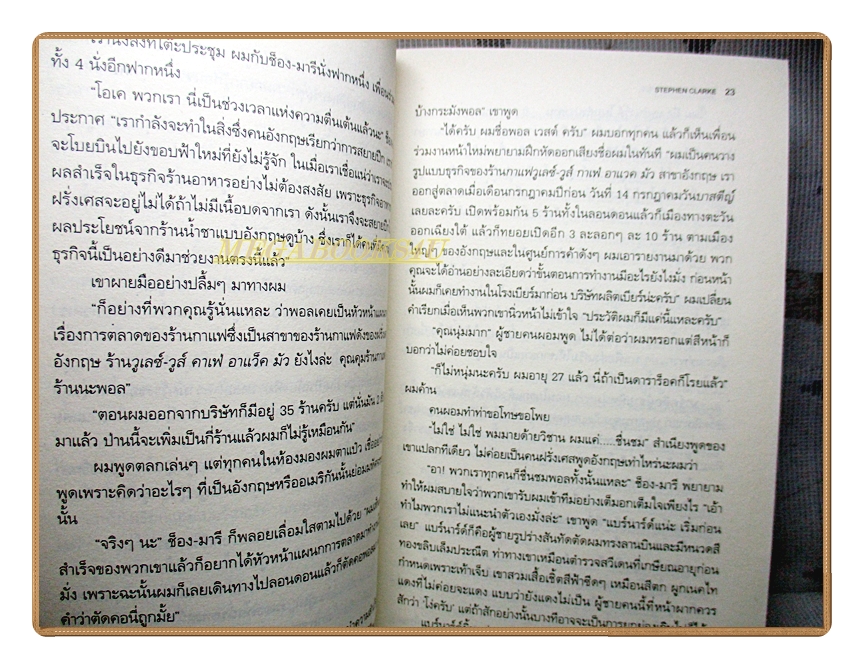 ทั้ง 4 นั่งอีกฟากหนึ่ง
"โอเค พวกเรา นี่เป็นช่วงเวลาแห่งความตื่นเต้นแล้วนะ"
ประกาศ "เรากำลังจะทำในสิ่งซึ่งคนอังกฤษเรียกว่าการสยายปีก
จะโบยบินไปยังขอบฟ้าใหม่ที่ยังไม่รู้จัก ในเมื่อเราเชื่อแน่ว่าเรา
ผลสำเร็จในธุรกิจร้านอาหารอย่างไม่ต้องสงสัย เพราะธุรกิจ
ฝรั่งเศสจะอยู่ไม่ได้ถ้าไม่มีเนื้อบดจากเรา ดังนั้นเราจึงจะสยาย
ผลประโยชน์จากร้านน้ำชาแบบอังกฤษดูบ้าง ซึ่งเราก็ได้
ธุรกิจนี้เป็นอย่างดีมาช่วยงานตรงนี้แล้ว"
เขาผายมืออย่างปลื้มๆ มาทางผม
"ก็อย่างที่พวกคุณรู้นั่นแหละ ว่าพอลเคยเป็นหัวหน้า
เรื่องการตลาดของร้านกาแฟซึ่งเป็นสาขาของร้านกาแฟดังของ
อังกฤษ ร้านวูเลซ์-วูส์ คาเฟ อาแว็ค มัว ยังไงล่ะ คุณคุมร้าน
ร้านนะพอล"
"ตอนผมออกจากบริษัทก็มีอยู่ 35 ร้านครับ แต่นั่นมัน 2
มาแล้ว ป่านนี้จะเพิ่มเป็นกี่ร้านแล้วผมก็ไม่รู้เหมือนกัน"
ผมพูดตลกเล่นๆ แต่ทุกคนในห้องมองผมตาแป๋ว
พูดเพราะคิดว่าอะไรๆ ที่เป็นอังกฤษหรืออเมริกันนั้นย่อม
นั้น
"จริงๆ นะ" ช็อง-มารี ก็พลอยเลื่อมใสตามไปด้วย
สำเร็จของพวกเขาแล้วก็อยากได้หัวหน้าแผนกการตลาดมา
มั่ง เพราะฉะนั้นผมก็เลยเดินทางไปลอนดอนแล้วก็ตัดคอ
คำว่าตัดคอนี่ถูกมั้ย"
MEGABOOKS4U
STEPHEN CLARKE 23
บ้างกระมังพอล" เขาพูด
"ได้ครับ ผมชื่อพอล เวสต์ ครับ" ผมบอกทุกคน แล้วก็เห็นเพื่อน
ร่วมงานหน้าใหม่พยายามฝึกหัดออกเสียงชื่อผมในทันที "ผมเป็นคนวาง
รูปแบบธุรกิจของร้านกาแฟวูเลซ์-วูส์ กาเฟ อาแวค มัว สาขาอังกฤษ เรา
ออกสู่ตลาดเมื่อเดือนกรกฎาคมปีก่อน วันที่ 14 กรกฎาคมวันบาสตีญ์
เลยละครับ เปิดพร้อมกัน 5 ร้านทั้งในลอนดอนแล้วก็เมืองทางตะวัน
ออกเฉียงใต้ แล้วก็ทยอยเปิดอีก 3 ละลอกๆ ละ 10 ร้าน ตามเมือง
ใหญ่ๆ ของอังกฤษและในศูนย์การค้าดังๆ ผมเอารายงานมาด้วย พวก
คุณจะได้อ่านอย่างละเอียดว่าขั้นตอนการทำงานมีอะไรยังไงมั่ง ก่อนหน้า
นั้นผมก็เคยทำงานในโรงเบียร์มาก่อน บริษัทผลิตเบียร์น่ะครับ" ผมเปลี่ยน
คำเรียกเมื่อเห็นพวกเขานิ่วหน้าไม่เข้าใจ "ประวัติผมก็มีแค่นี้แหละครับ"
"คุณนุ่มมาก" ผู้ชายคนผอมพูด ไม่ได้ต่อว่าผมหรอกแต่สีหน้าก็
บอกว่าไม่ค่อยชอบใจ
"ก็ไม่หนุ่มนะครับ ผมอายุ 27 แล้ว นี่ถ้าเป็นดาราร็อคก็โรยแล้ว"
ผมค้าน
คนผอมทำท่าขอโทษขอโพย
"ไม่ใช่ ไม่ใช่ พมมายด้ายวิชาน ผมแค่.....ชื่นชม" สำเนียงพูดของ
เขาแปลกทีเดียว ไม่ค่อยเป็นคนฝรั่งเศสพูดอังกฤษเท่าไหร่นะผมว่า
"อา! พวกเราทุกคนก็ชื่นชมพอลทั้งนั้นแหละ" ช็อง-มารี พยายาม
ทำให้ผมสบายใจว่าพวกเขารับผมเข้าทีมอย่างเต็มอกเต็มใจเพียงไร "เอ้า
ทำไมพวกเราไม่แนะนำตัวเองมั่งล่ะ" เขาพูด "แบร์นาร์ด์แน่ะ เริ่มก่อน
เลย" แบร์นาร์ด์ก็คือผู้ชายรูปร่างสันทัดตัดผมทรงลานบินและมีหนวดสี
ทองขลิบเล็มประณีต ท่าทางเขาเหมือนตำรวจสวีเดนที่เกษียณอายุก่อน
กำหนดเพราะเท้าเจ็บ เขาสวมเสื้อเชิ้ตสีฟ้าซีดๆ เหมือนสีตก ผูกเนคไท
แดงที่ไม่ค่อยจะแดง แบบว่ายังแดงไม่เป็น ผู้ชายคนนี้ที่หน้าผากควร
สักว่า 'โง่ครับ' แต่ถ้าสักอย่างนั้นบางทีอาจจะเป็นการ